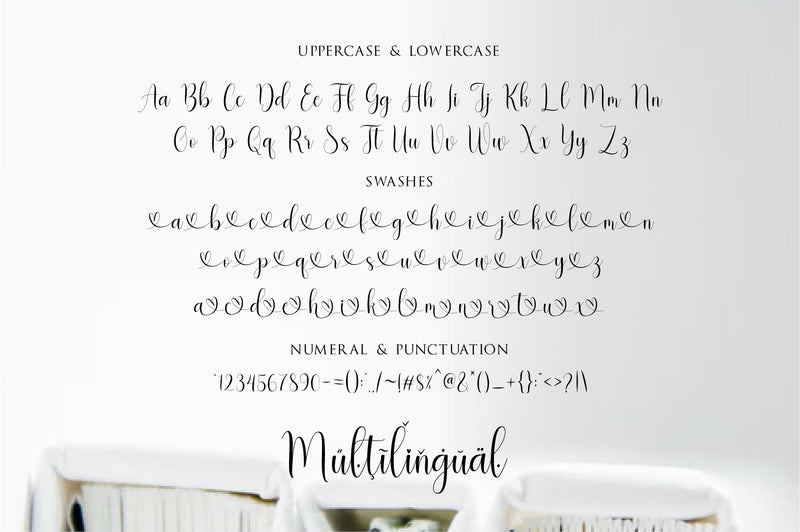 UPPERCASE & LOWERCASE
Aa Bb Cc Dd Ee Ff Gg Hh Ii Jj Kk Ll Mm Nn
Oo Pp Qq Rr Ss Tt Uu Vv Ww Xx Yy Zz
SWASHES
a b c d e f g h i j k l m n
o p q r s u v w x y z
a o d e h i k l m n r t u x
NUMERAL & PUNCTUATION
`1234567890-=();',./~!#$%^@&*()_+{}:"<>?|\
Műļţĩľıňġŭäŀ